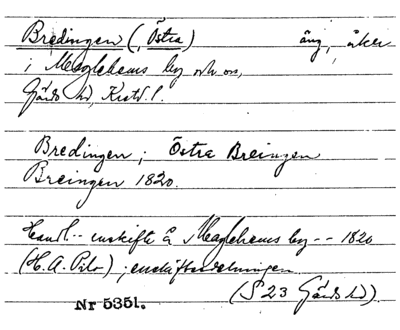 Bredingen (, Östra) äng, åker
i Maglehems by och sn,
Gärds hd, Krist. l.
Bredingen; Östra Breingen
Breingen 1820.
Handl. - enskifte å Maglehems by -- 1820
(H. A. Pihl); enskiftesdelningen
(S 23 Gärds hd)
Nr 5351.